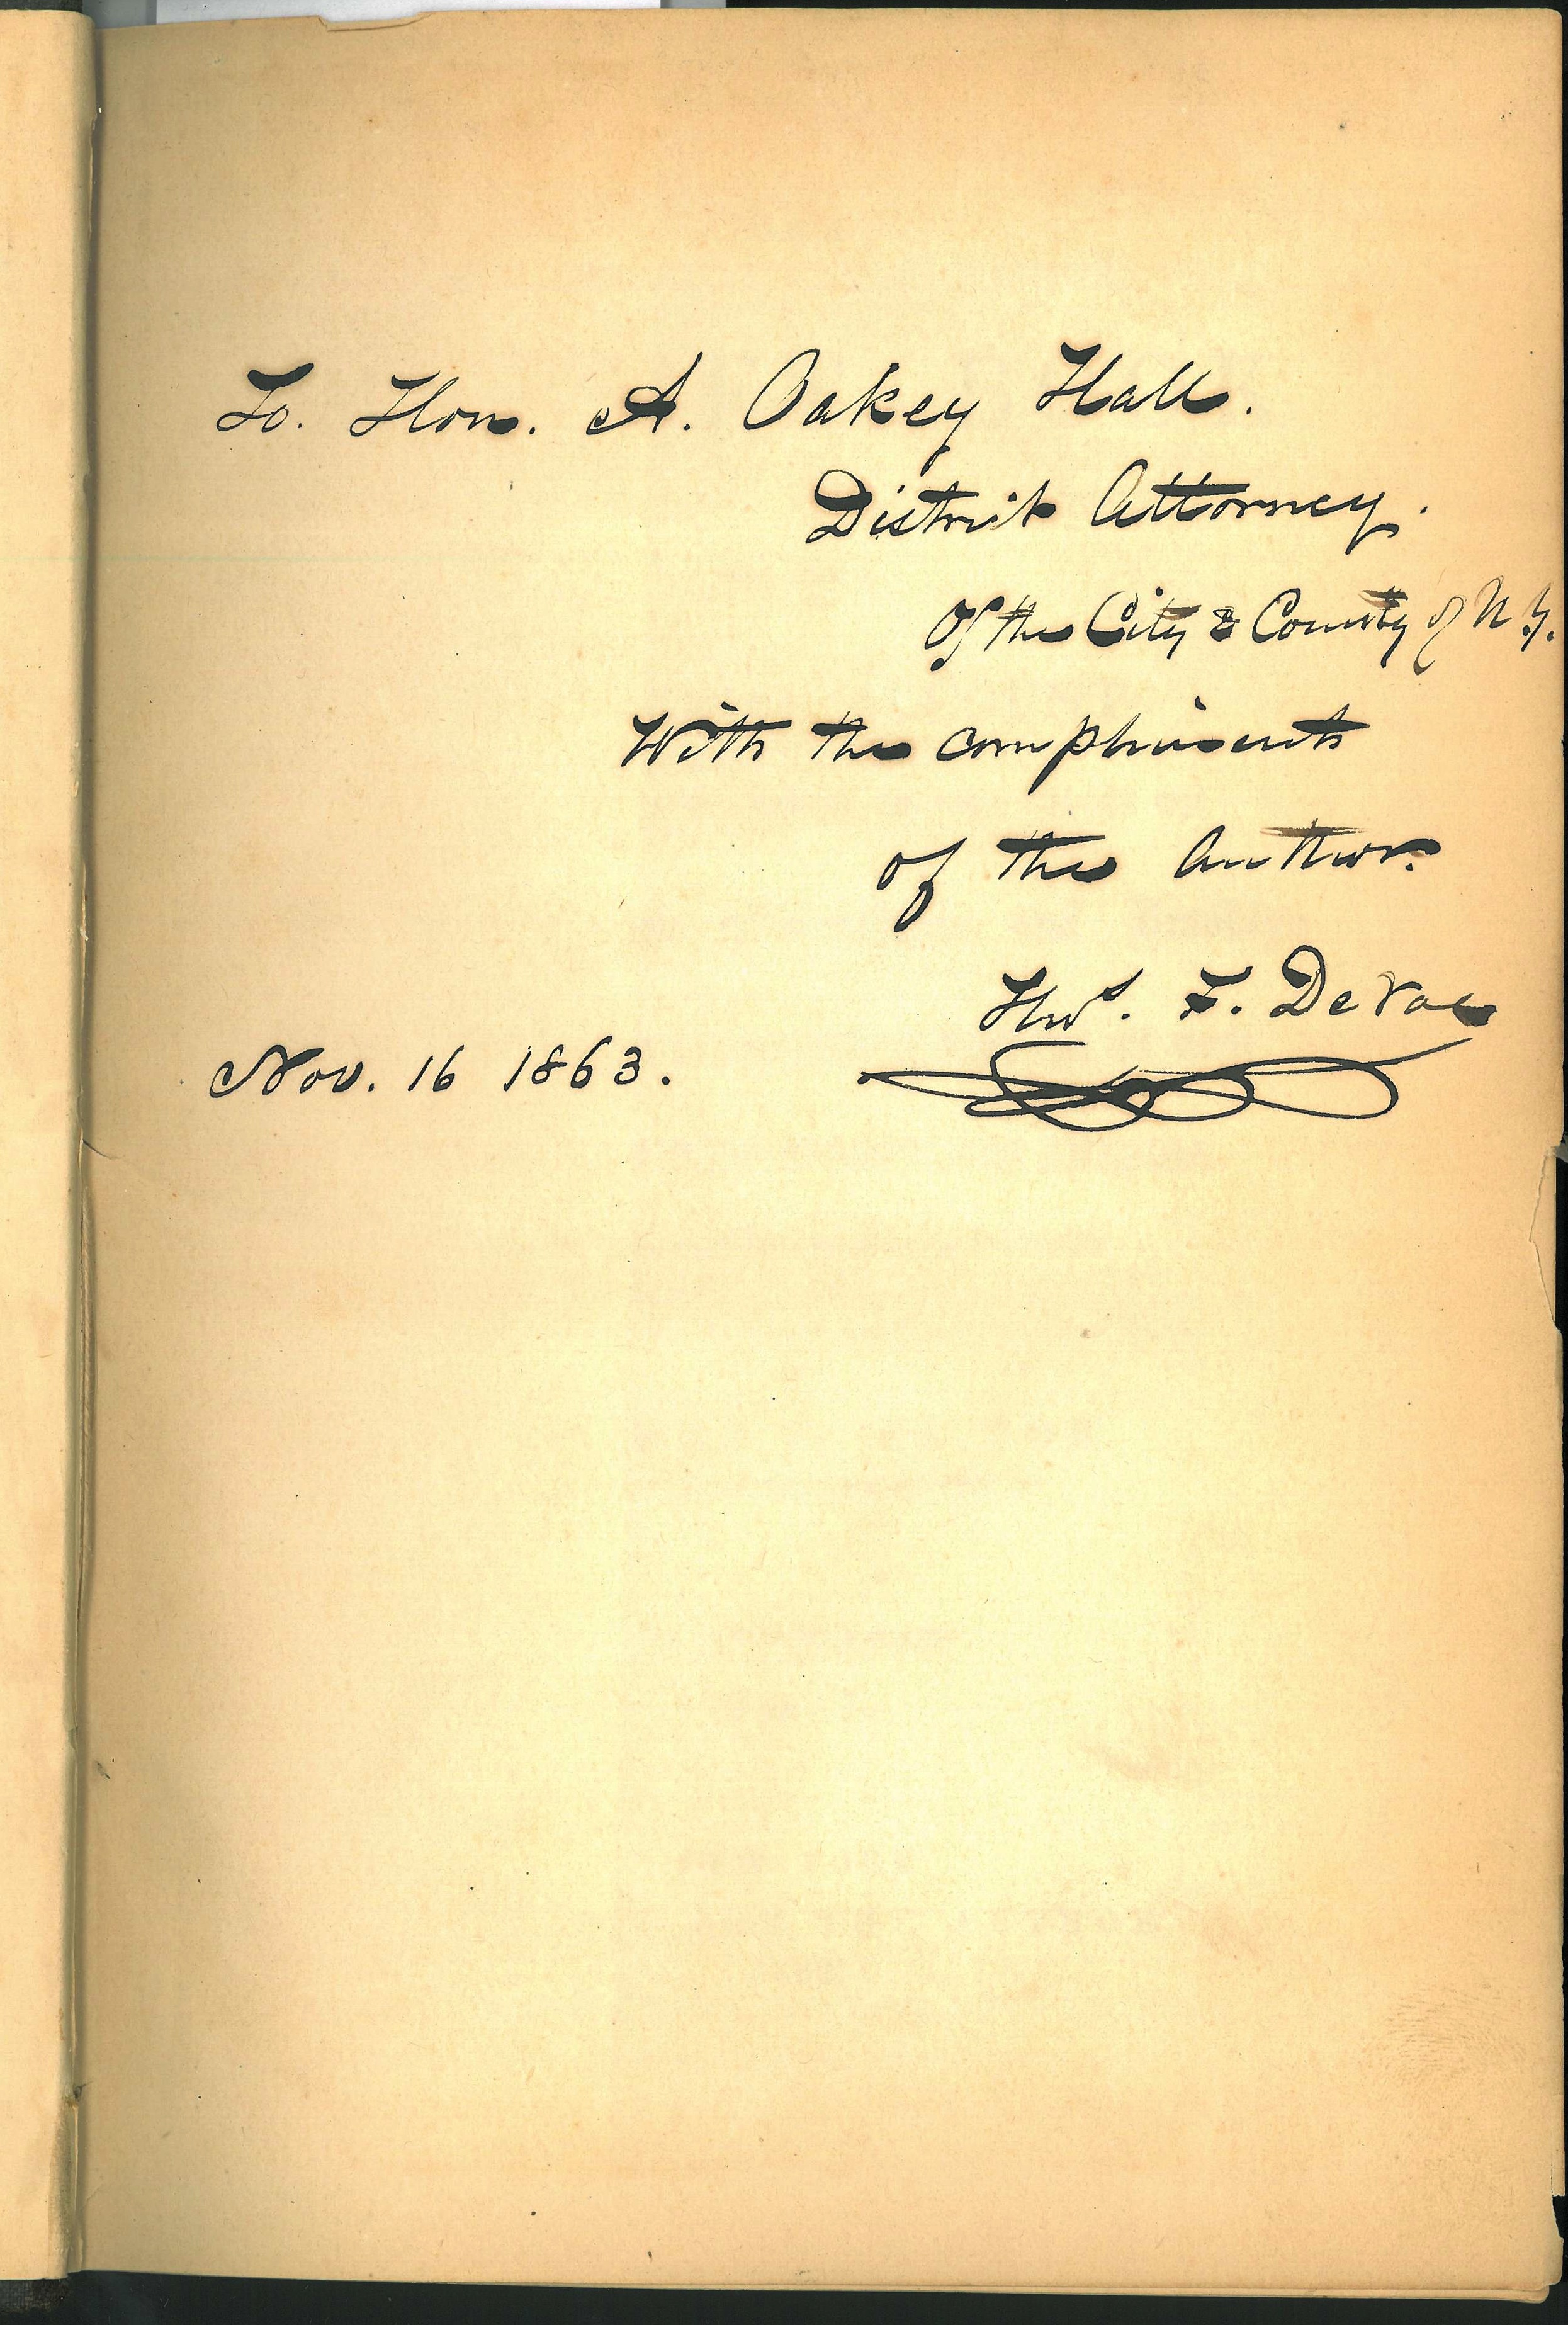 To. Hon. A. Oakey Hall.
District Attorney.
Of the City & County of N.Y.
With the compliments
of the Author.
Thos. F. De Voe
Nov. 16 1863.